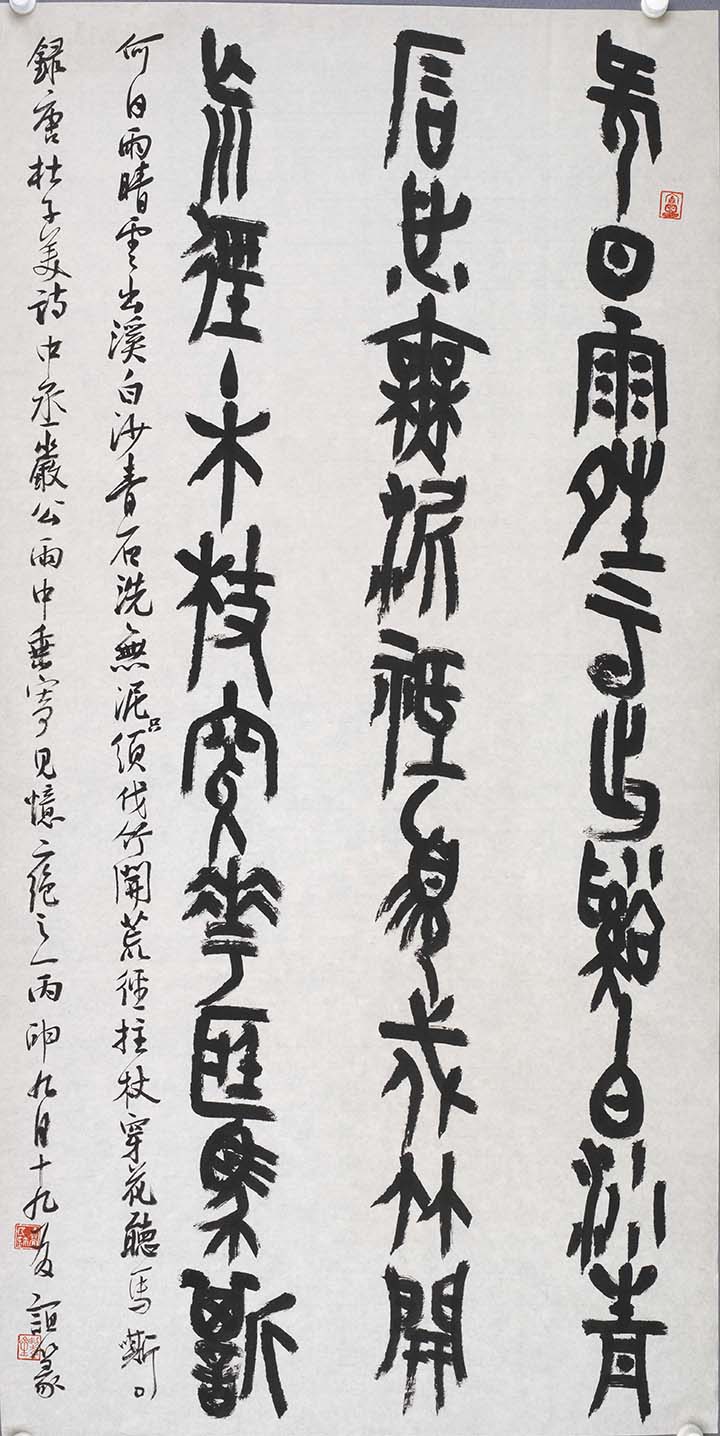 何日雨晴雲出谿白沙青
石洗無泥祗須伐竹開
荒徑拄杖穿花聽馬嘶
何日雨晴雲出溪白沙青石洗無泥只須伐竹開荒徑拄杖穿花聽馬嘶
錄唐杜子美詩中丞嚴公雨中垂寄見憶二絕之一丙卯九月十九誼篆